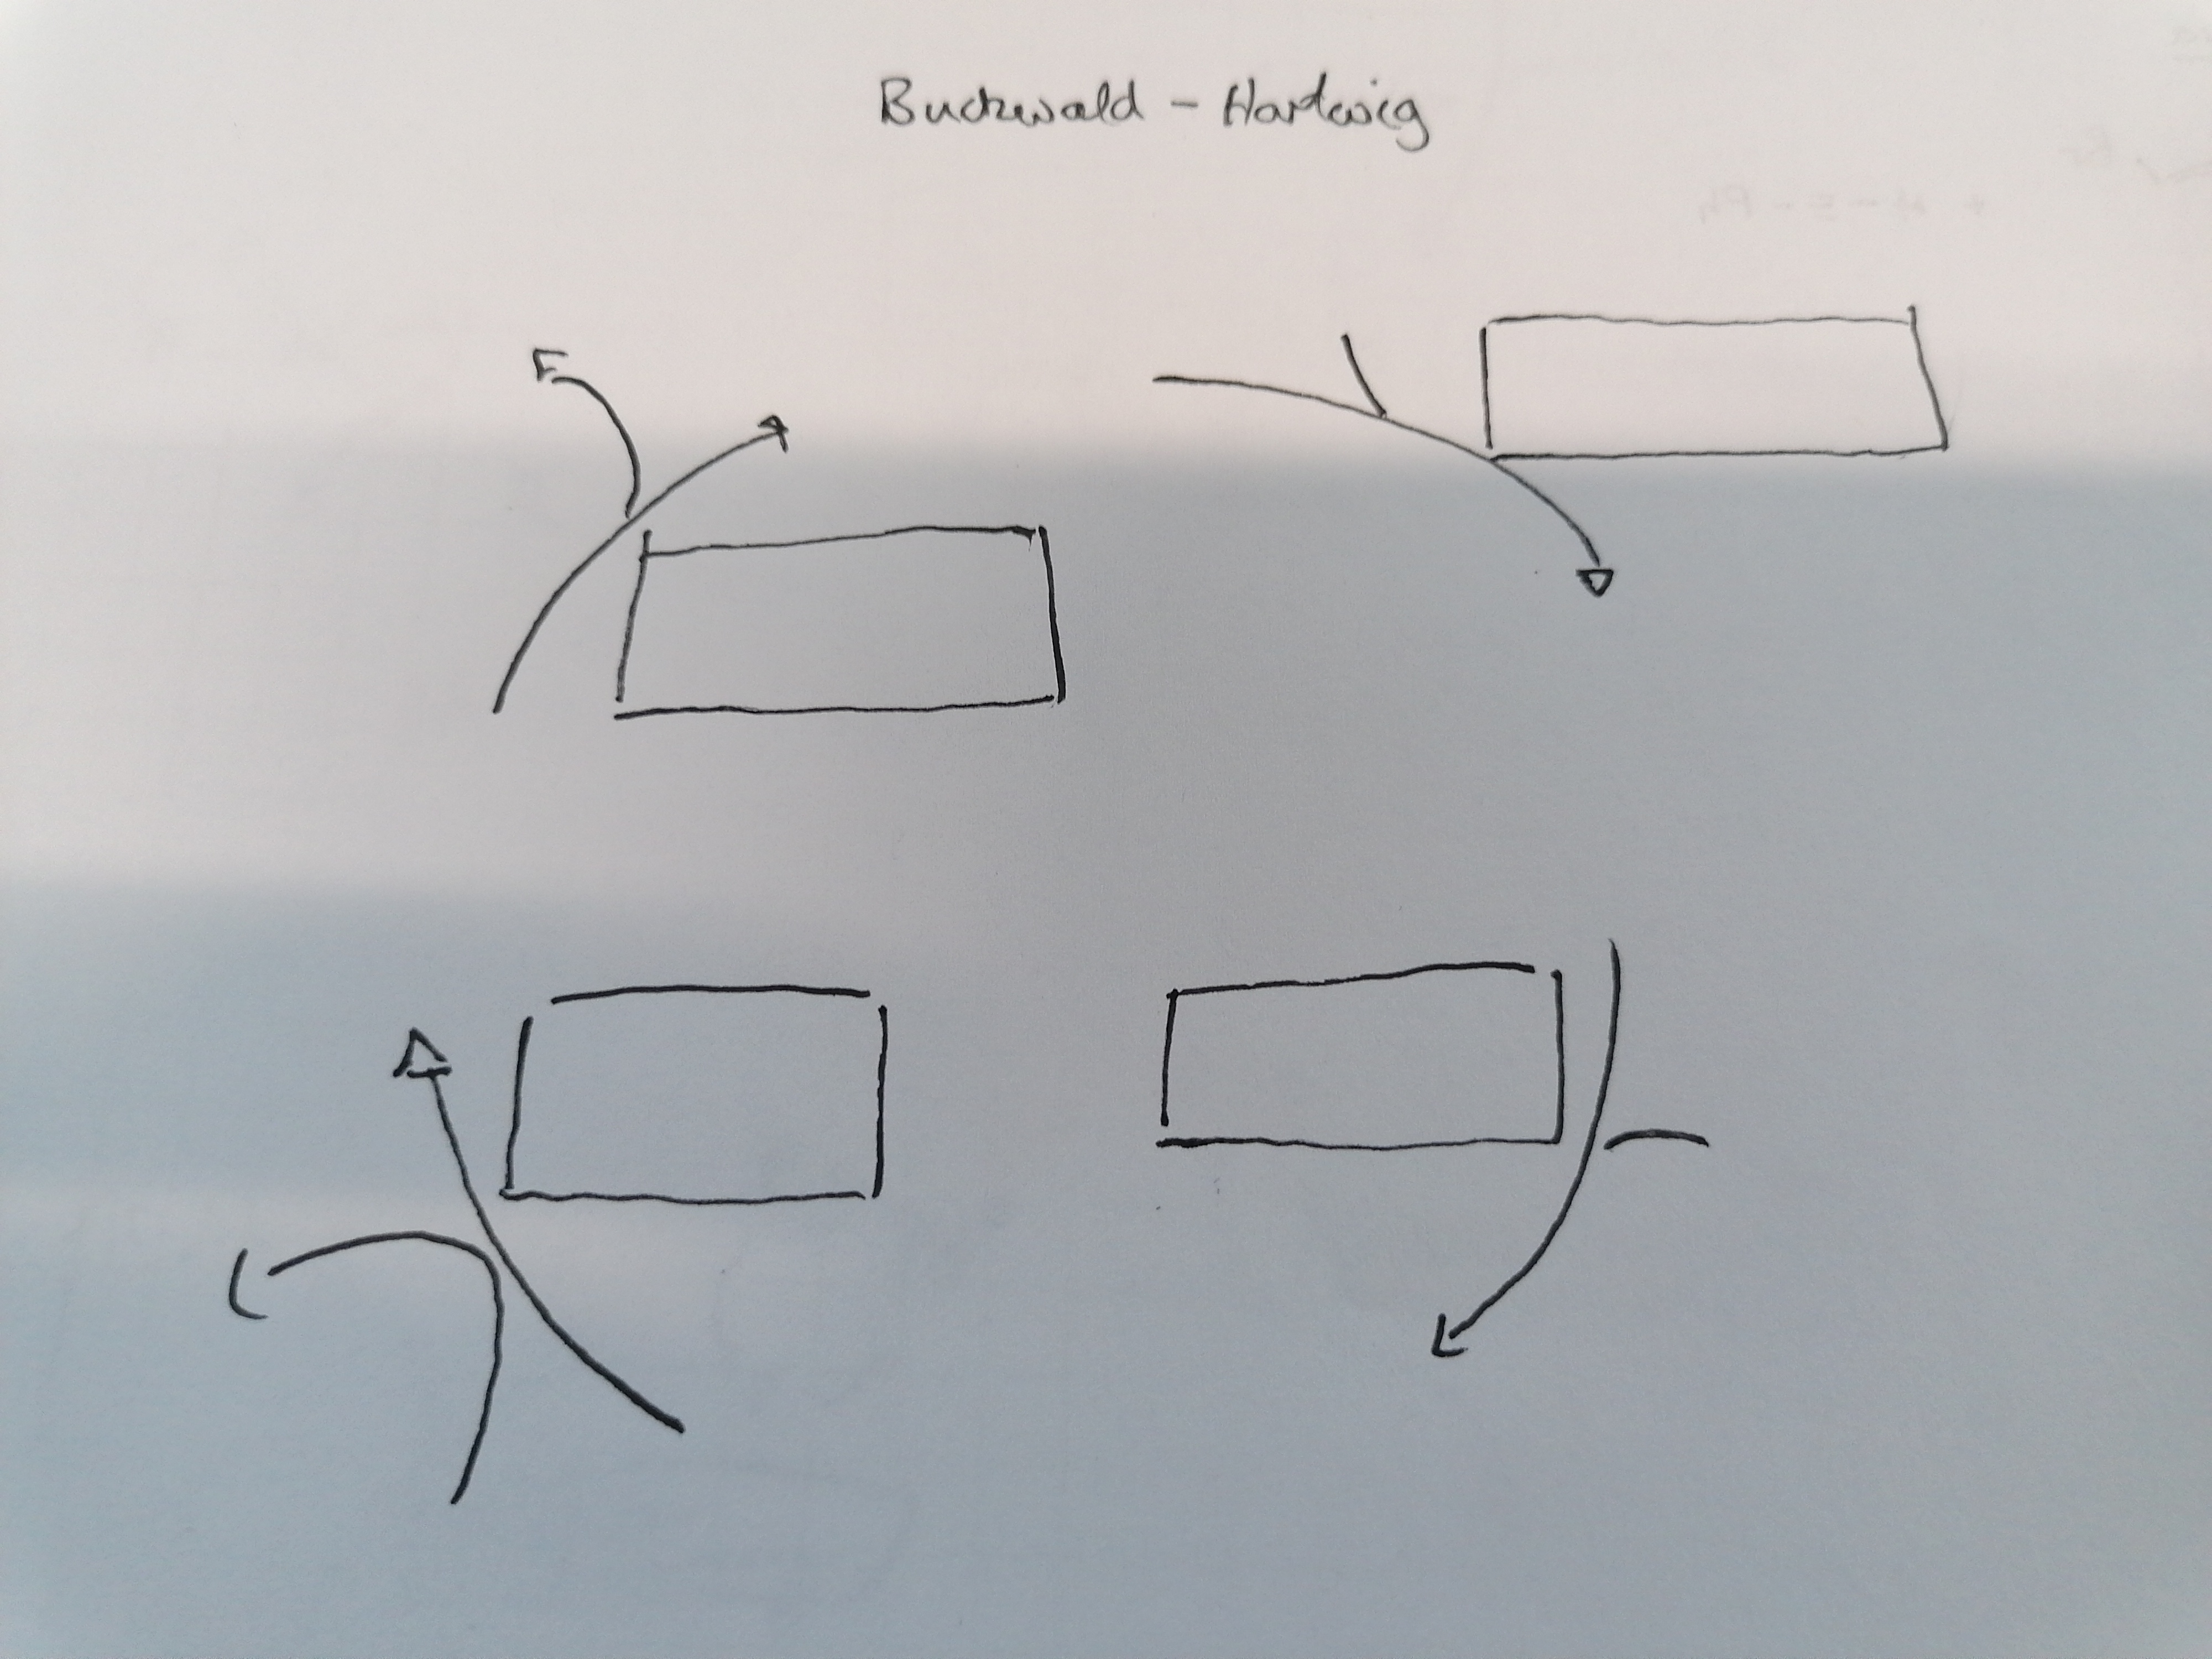 Buchwald - Hartwig